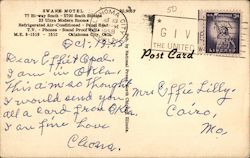 SWANK MOTEL
77 Hi-way South - 5700 South Shields
33 Ultra Modern Rooms
Refrigerated Air-Conditioned - Panel Heat
T.V. - Phones - Sound Proof Walls
M.E. 8-1519 - 1510 Oklahoma City, Okla.
GIV
THE UNITED
Post Card
Oct, 1958
Dear Effie & Opal.
I am in Okla.
This A.M. so thought
I would send you
all a card from Okla.
I am fine Love
Cleora.
Mrs Effie Lilly.
Cairo,
Mo.